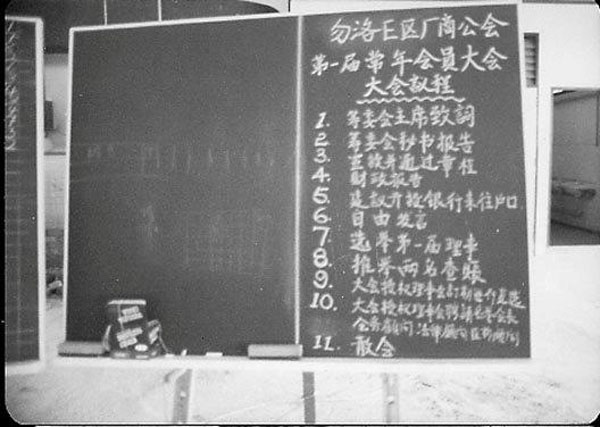 勿洛E区厂商公会
第一届常年会員大会
大会議程
1. 筹委会主席致詞
2. 筹委会秘书报告
3. 宣读并通过章程
4. 财政报告
5. 建議开設银行来往户口
6. 自由发言
7. 选举第一届理事
8. 推举两名查賬
9. 大会授权理事会訂期
10. 大会授权理事会聘請名誉会长
会务顧问 法律顧问
11. 散会